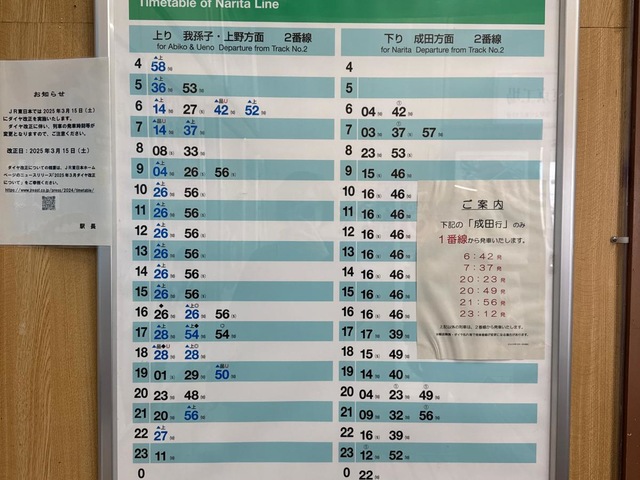 Timetable of Narita Line
上り 我孫子・上野方面 2番線
for Abiko & Ueno Departure from Track No.2
4 58
5 36 53
6 14 27 42 52
7 14 37
8 08 33
9 04 26 56
10 26 56
11 26 56
12 26 56
13 26 56
14 26 56
15 26 56
16 26 26 56
17 28 54 54
18 28 28
19 01 29 50
20 23 48
21 20 56
22 27
23 11
0
下り 成田方面 2番線
for Narita Departure from Track No.2
4
5
6 04 42
7 03 37 57
8 23 53
9 15 46
10 16 46
11 16 46
12 16 46
13 16 46
14 16 46
15 16 46
16 16 46
17 17 39
18 15 49
19 14 40
20 04 23 49
21 09 32 56
22 16 39
23 12 52
0 22
お知らせ
JR東日本では2025年3月15日(土)
にダイヤ改正を実施いたします。
ダイヤ改正に伴い、列車の発車時刻等が
変更となりますので、ご注意ください。
改正日:2025年3月15日(土)
ダイヤ改正についての概要は、JR東日本ホーム
ページのニュースリリース「2025年3月ダイヤ改正
について」をご参照ください。
駅 長
ご案内
下記の「成田行」のみ
1番線から発車いたします。
6:42発
7:37発
20:23発
20:49発
21:56発
23:12発
上記以外の列車は、2番線から発車いたします。